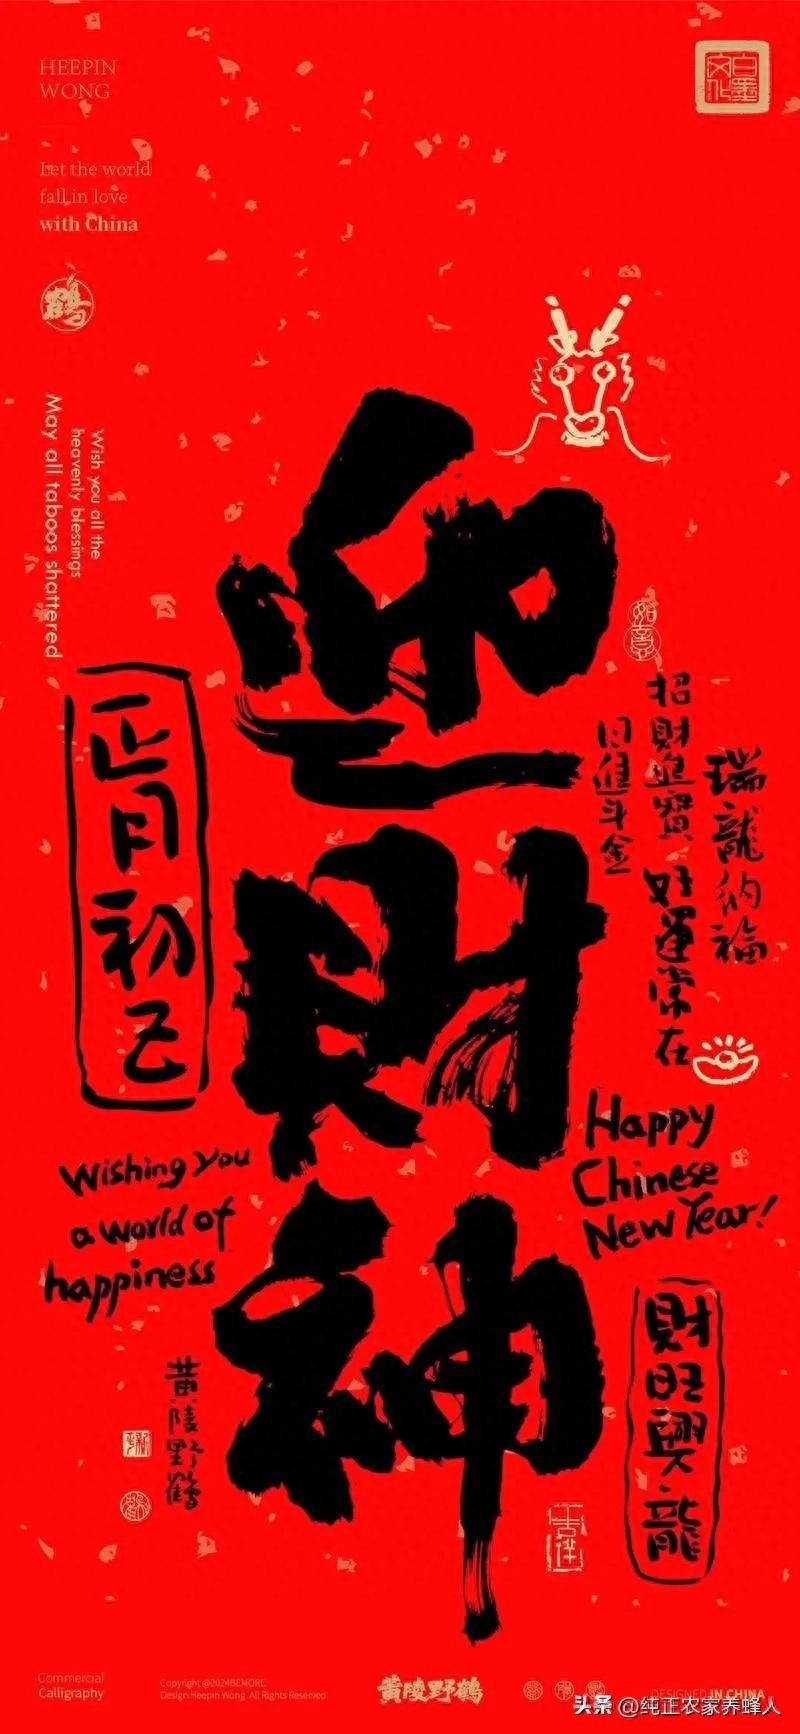 HEEPIN
WONG
Let the world
fall in love
with China
白墨
文化
鶴
Wish you all the
heavenly blessings
May all taboos shattered
迎財神
正月初五
如意
瑞龍納福
招財進寶 好運常在
日進斗金
Happy
Chinese
New Year!
Wishing you
a world of
happiness
財旺興龍
黄陵野鶴
吉祥
Commercial
Calligraphy
Copyright @2024BEMORE
Design:Heepin Wong All Rights Reserved
黄陵野鶴
DESIGNED IN CHINA
头条 @纯正农家养蜂人